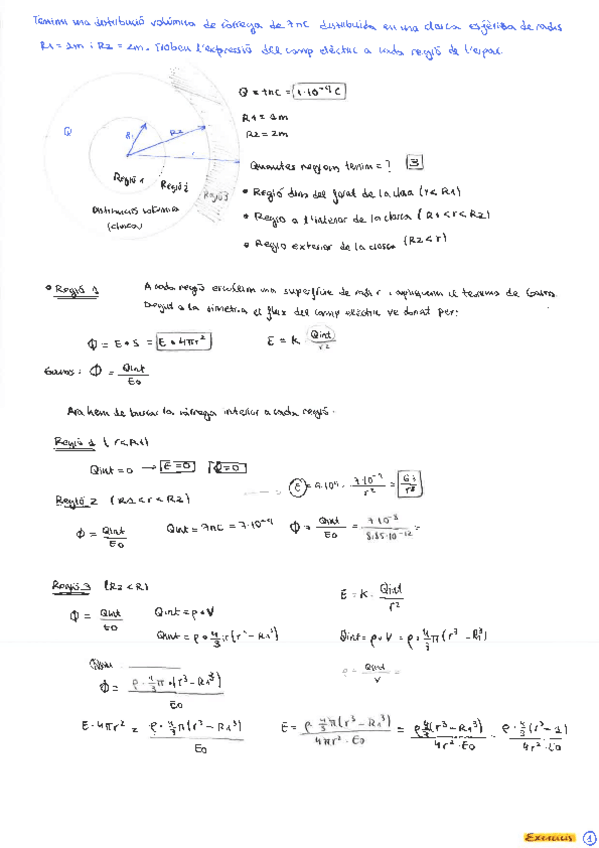 Tenim una distribució volúmica de càrrega de 7nC distribuida en una closca esfèrica de radis
R1 = 1m i R2 = 2m. Trobeu l'expressió del camp elèctric a cada regió de l'espai.
Q = 7nC = 7·10⁻⁹ C
R1 = 1m
R2 = 2m
Q
R1
R2
Regió 1
Regió 2
Regió 3
Distribució volúmica
(closca)
Quantes regions tenim = ? 3
• Regió dins del forat de la closca (r < R1)
• Regió a l'interior de la closca (R1 < r < R2)
• Regió exterior de la closca (R2 < r)
• Regió 1
A cada regió escollim una superfície de radi r i apliquem el teorema de Gauss.
Degut a la simetria el flux del camp elèctric ve donat per:
Φ = E · S = E · 4πr²
E = K · Qint / r²
Gauss: Φ = Qint / E0
Ara hem de buscar la càrrega interior a cada regió.
Regió 1 (r < R1)
Qint = 0 → E = 0 Φ = 0
Regió 2 (R1 < r < R2)
E = 9·10⁹ · 7·10⁻⁹ / r² = 63 / r²
Φ = Qint / E0
Qint = 7nC = 7·10⁻⁹
Φ = Qint / E0 = 7·10⁻⁹ / 8.85·10⁻¹² =
Regió 3 (R2 < R)
Φ = Qint / E0
Qint = ρ · V
E = K · Qint / r²
Qint = ρ · 4/3 π (r³ - R1³)
Qint = ρ · V = ρ · 4/3 π (r³ - R1³)
Φ = ρ · 4/3 π · (r³ - R1³) / E0
ρ = Qint / V =
E · 4πr² = ρ · 4/3 π (r³ - R1³) / E0
E = ρ · 4/3 π (r³ - R1³) / 4πr² · E0 = ρ 4/3 (r³ - R1³) / 4r² · E0 = ρ · 4/3 (r³ - 1) / 4r² · E0
Exercicis 1